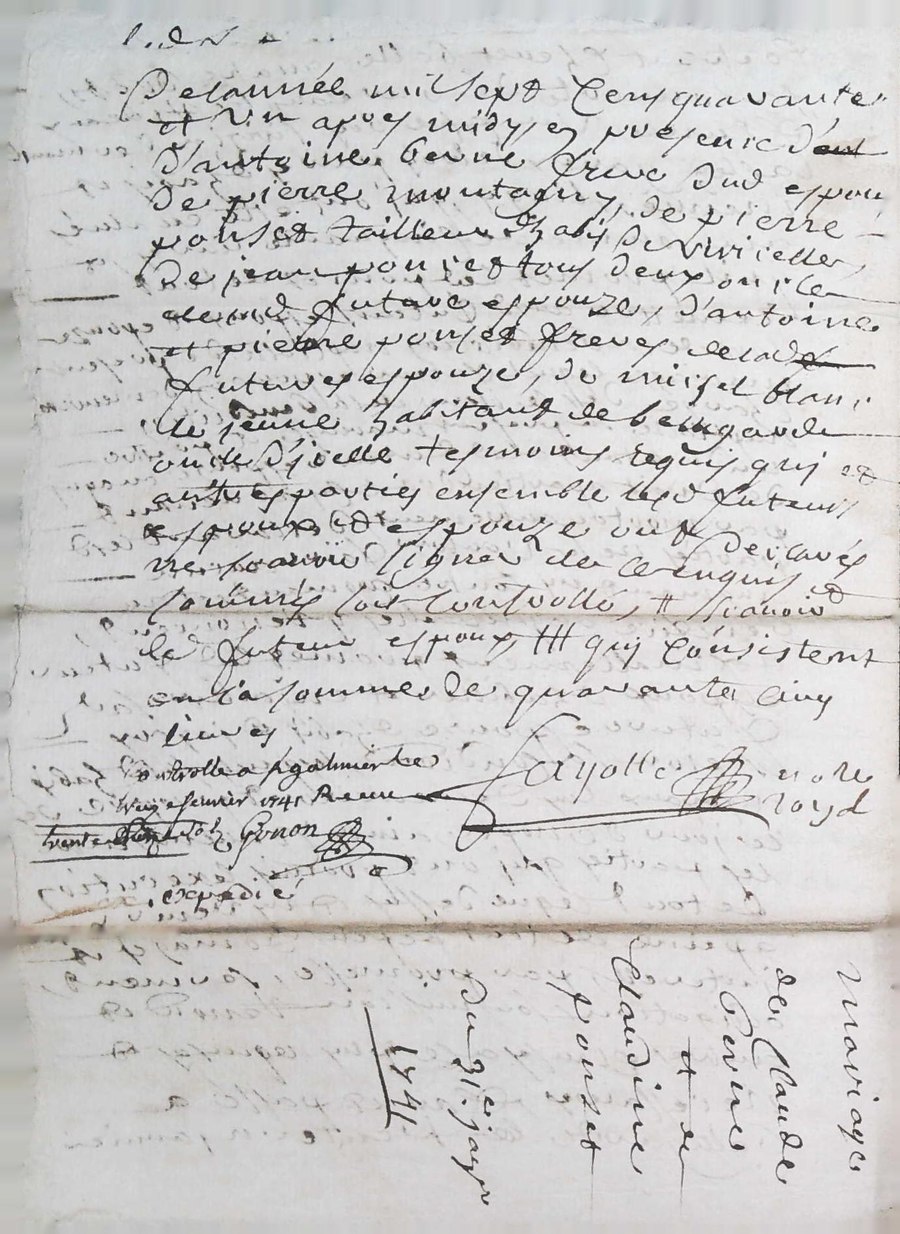 De lannée mil sept Cens quarante
et Un apres midy en presence
d'antoine berne frere dud espou
De pierre montagny, de pierre
ponset tailleur habt De Viricelles
De jean ponset tous deux oncle
de lad future espouze, d'antoine
et pierre ponset freres de lad
future espouze, de misset blanc
le jeune habitant de bellegarde
oncle D'jcelle tesmoins requis quj et
autres parties ensemble lesd futeurs
espoux et espouze ont Declarés
ne scavoir signer de ce enquis et
sommés soit controllé, # scavoir
le futeur espoux ### quj Consistent
en la somme de quarante cinq
livres
Controlle a st galmier le
fevrier 1741 Receu
trente Gonon
Fayolle nore
royal
expedié
Mariage
de Claude
Berne
et de
Claudine
ponset
Du 31e janr
1741